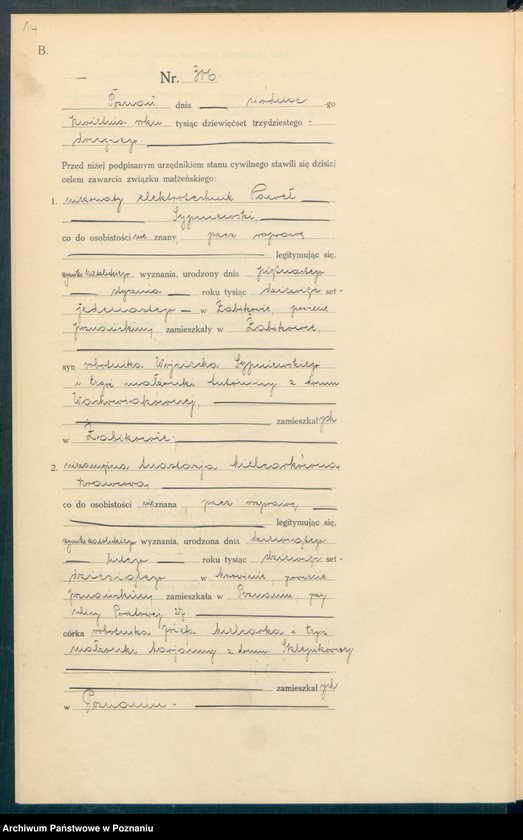 14
B.
Nr. 306
Poznań, dnia siódme -go
kwietnia roku tysiąc dziewięćset trzydziestego
drugiego.
Przed niżej podpisanym urzędnikiem stanu cywilnego stawili się dzisiaj
celem zawarcia związku małżeńskiego:
1. nieżonaty elektrotechnik Paweł
Sypniewski,
co do osobistości nie znany, przez
legitymując się,
rzymsko katolickiego wyznania, urodzony dnia piętnastego
stycznia roku tysiąc dziewięć set -
jedenastego w Żabikowie, powiecie
poznańskim, zamieszkały w Żabikowie,
syn robotnika Wojciecha Sypniewskiego
i tegoż małżonki Antoniny z domu
Waśkowiakównej,
zamieszkałych
w Żabikowie;
2. niezamężna Anastazja Mielcarkówna
krawcowa,
co do osobistości nieznana, przez
legitymując się,
rzymsko katolickiego wyznania, urodzona dnia dziewiątego
lutego roku tysiąc dziewięć set -
dziesiątego w powiecie
poznańskim, zamieszkała w Poznaniu, przy
ulicy
córka robotnika Józefa Mielcarka i tegoż
małżonki Marjanny z domu
zamieszkałych
w Poznaniu.
Archiwum Państwowe w Poznaniu